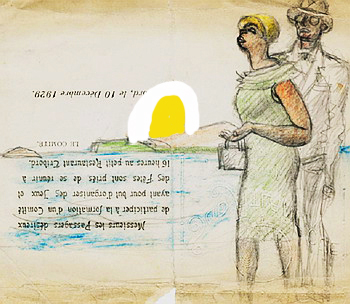 Messieurs les Passagers désireux
de participer à la formation d'un Comité
ayant pour but d'organiser des Jeux et
des Fêtes sont priés de se réunir à
16 heures au petit Restaurant Tribord.
LE COMITÉ.
ord, le 10 Décembre 1929.